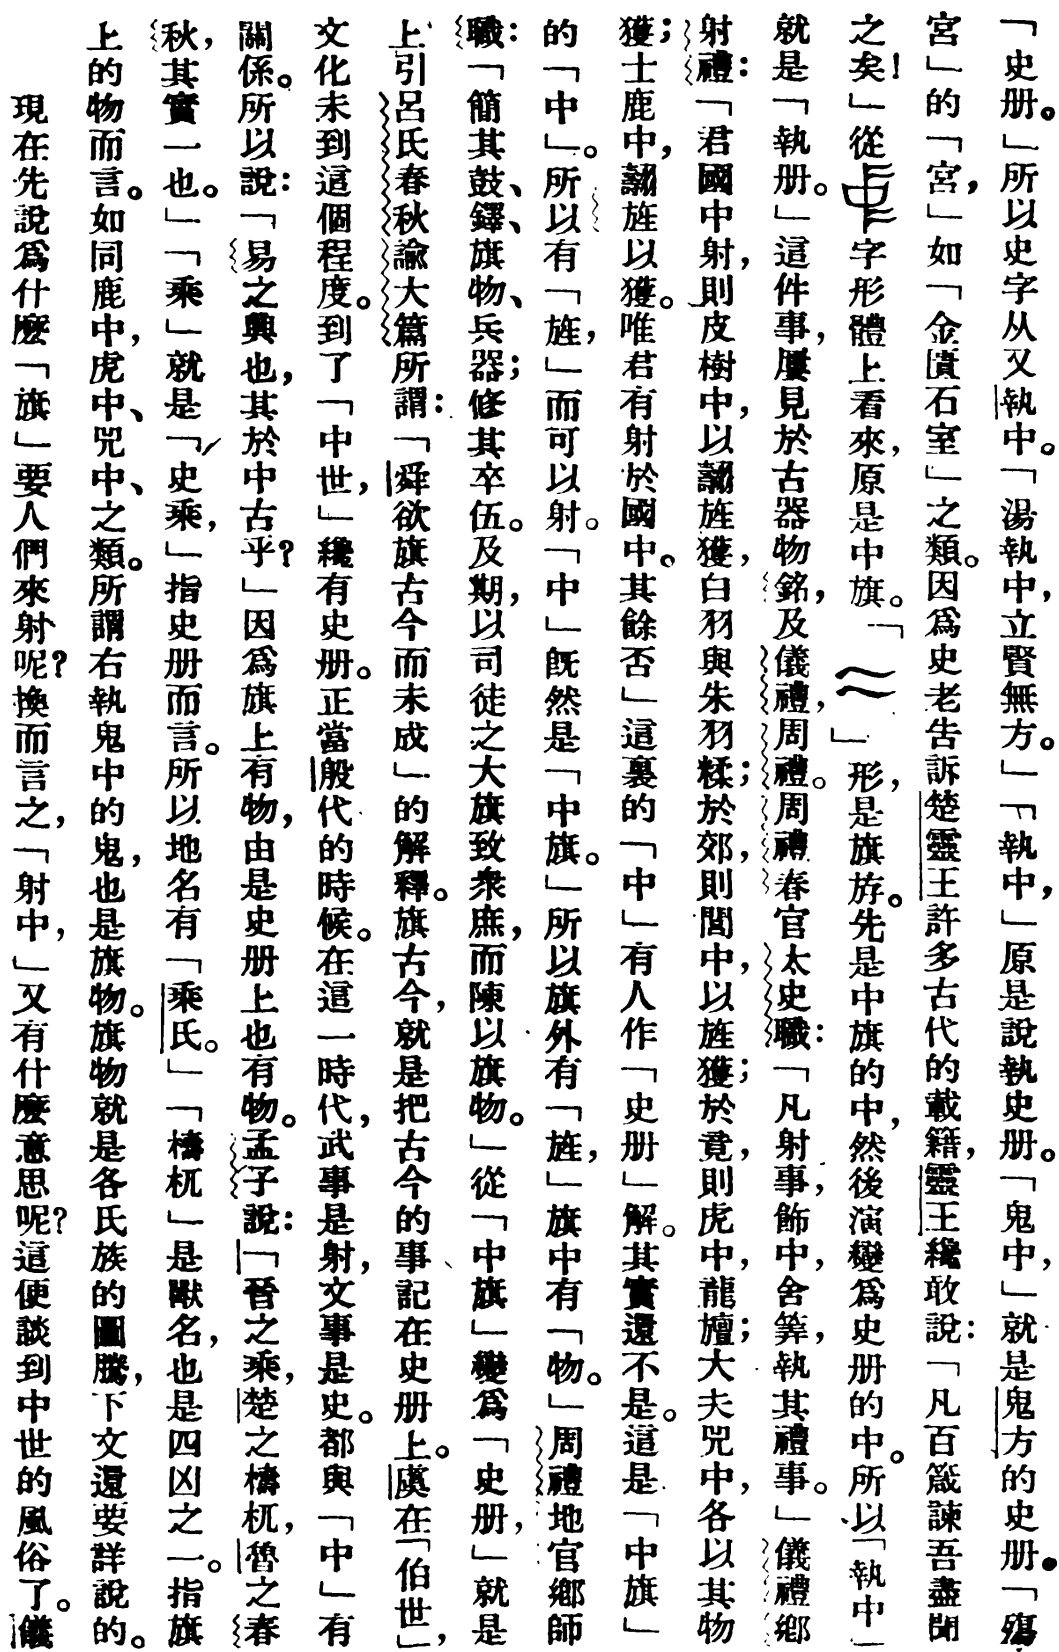 「史册。」所以史字从又執中。「湯執中，立賢無方。」「執中，」原是說執史册。「鬼中，」就是鬼方的史册。「殤
宮」的「宮，」如「金匱石室」之類。因爲史老告訴楚靈王許多古代的載籍，靈王纔敢說：「凡百箴諫吾盡聞
之矣！」從字形體上看來，原是中旗。「」形，是旗斿。先是中旗的中，然後演變爲史册的中。所以「執中」
就是「執册。」這件事，屢見於古器物銘，及儀禮，周禮。周禮春官太史職：「凡射事，飾中，舍筭，執其禮事。」儀禮鄉
射禮：「君國中射，則皮樹中，以翿旌獲，白羽與朱羽糅；於郊，則閭中，以旌獲；於竟，則虎中，龍旜；大夫兕中，各以其物
獲；士鹿中，翿旌以獲。唯君有射於國中。其餘否」這裏的「中」有人作「史册」解。其實還不是。這是「中旗」
的「中」。所以有「旌，」而可以射。「中」旣然是「中旗。」所以旗外有「旌，」旗中有「物。」周禮地官鄉師
職：「簡其鼓、鐸、旗物、兵器；修其卒伍。及期，以司徒之大旗致衆庶，而陳以旗物。」從「中旗」變爲「史册，」就是
上引呂氏春秋諭大篇所謂：「舜欲旗古今而未成」的解釋。旗古今，就是把古今的事記在史册上。虞在「伯世」，
文化未到這個程度。到了「中世，」纔有史册。正當殷代的時候。在這一時代，武事是射，文事是史。都與「中」有
關係。所以說：「易之興也，其於中古乎？」因爲旗上有物，由是史册上也有物。孟子說：「晉之乘，楚之檮杌，魯之春
秋，其實一也。」「乘」就是「史乘，」指史册而言。所以地名有「乘氏。」「檮杌」是獸名，也是四凶之一。指旗
上的物而言。如同鹿中，虎中、兕中、之類。所謂右執鬼中的鬼，也是旗物。旗物就是各氏族的圖騰，下文還要詳說的。
現在先說爲什麼「旗」要人們來射呢？換而言之，「射中，」又有什麼意思呢？這便談到中世的風俗了。儀